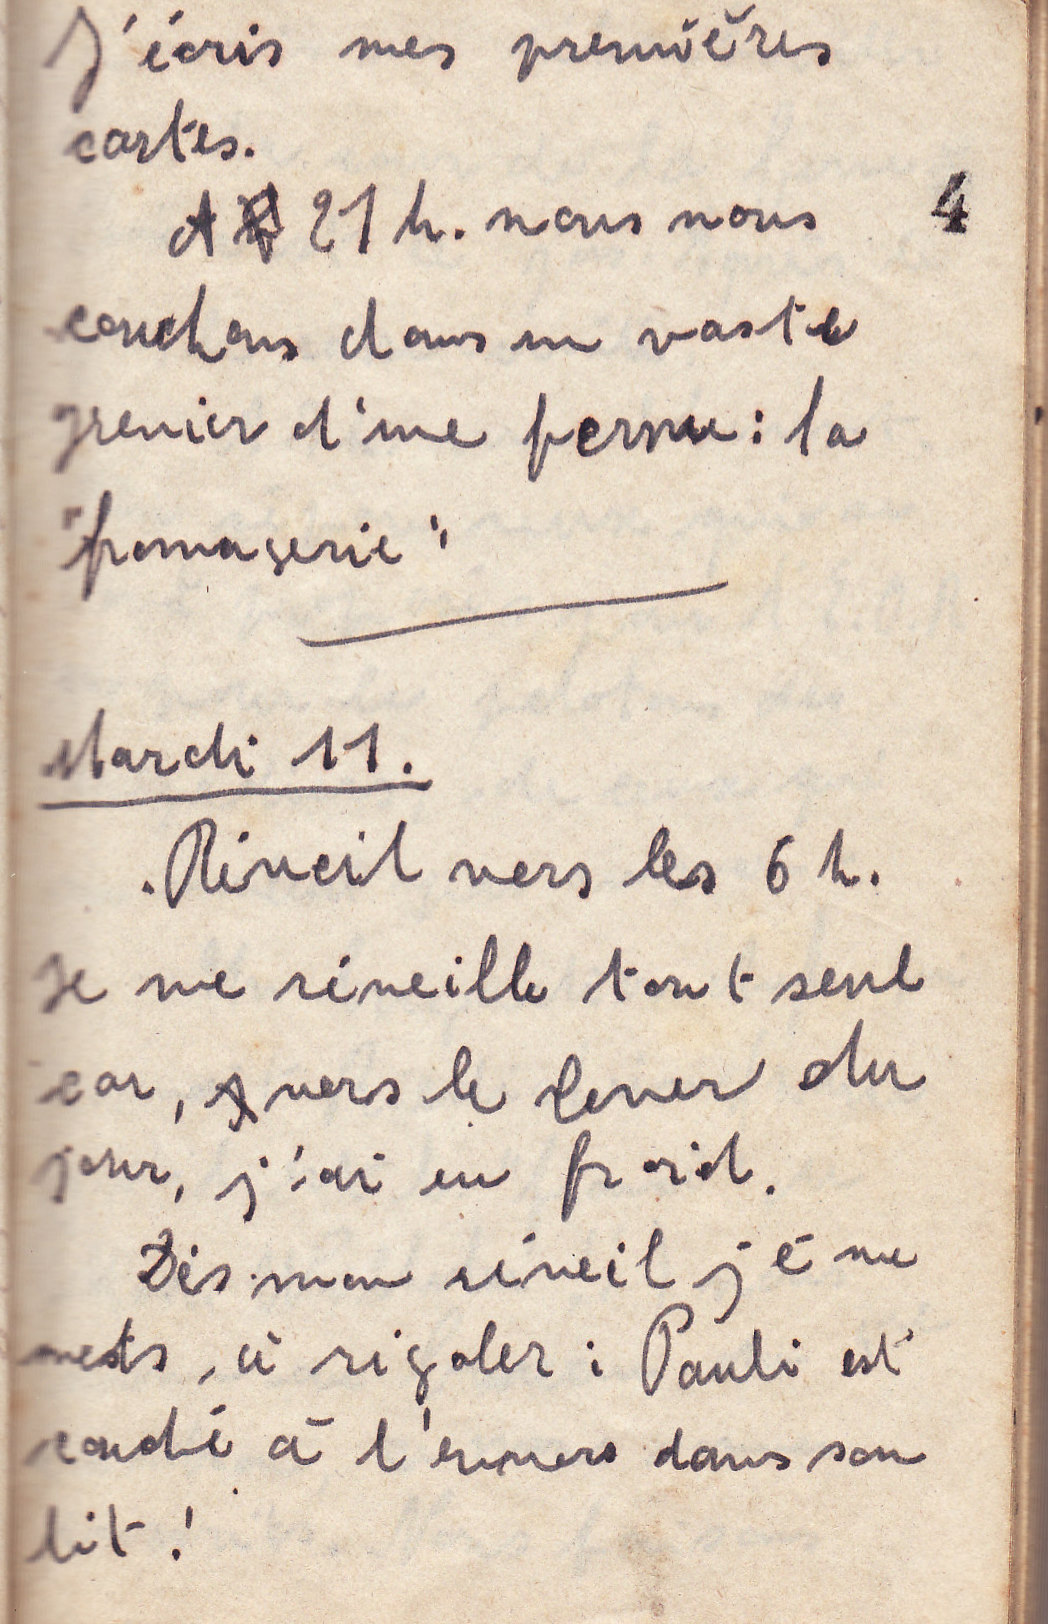 J'écris mes premières
cartes.
A 21 h. nous nous
4
couchons dans un vaste
grenier d'une ferme : la
"fromagerie"
Mardi 11.
Réveil vers les 6 h.
Je me réveille tout seul
car, vers le lever du
jour, j'ai eu froid.
Dès mon réveil je me
mets, à rigoler : Pauli est
couché à l'envers dans son
lit !